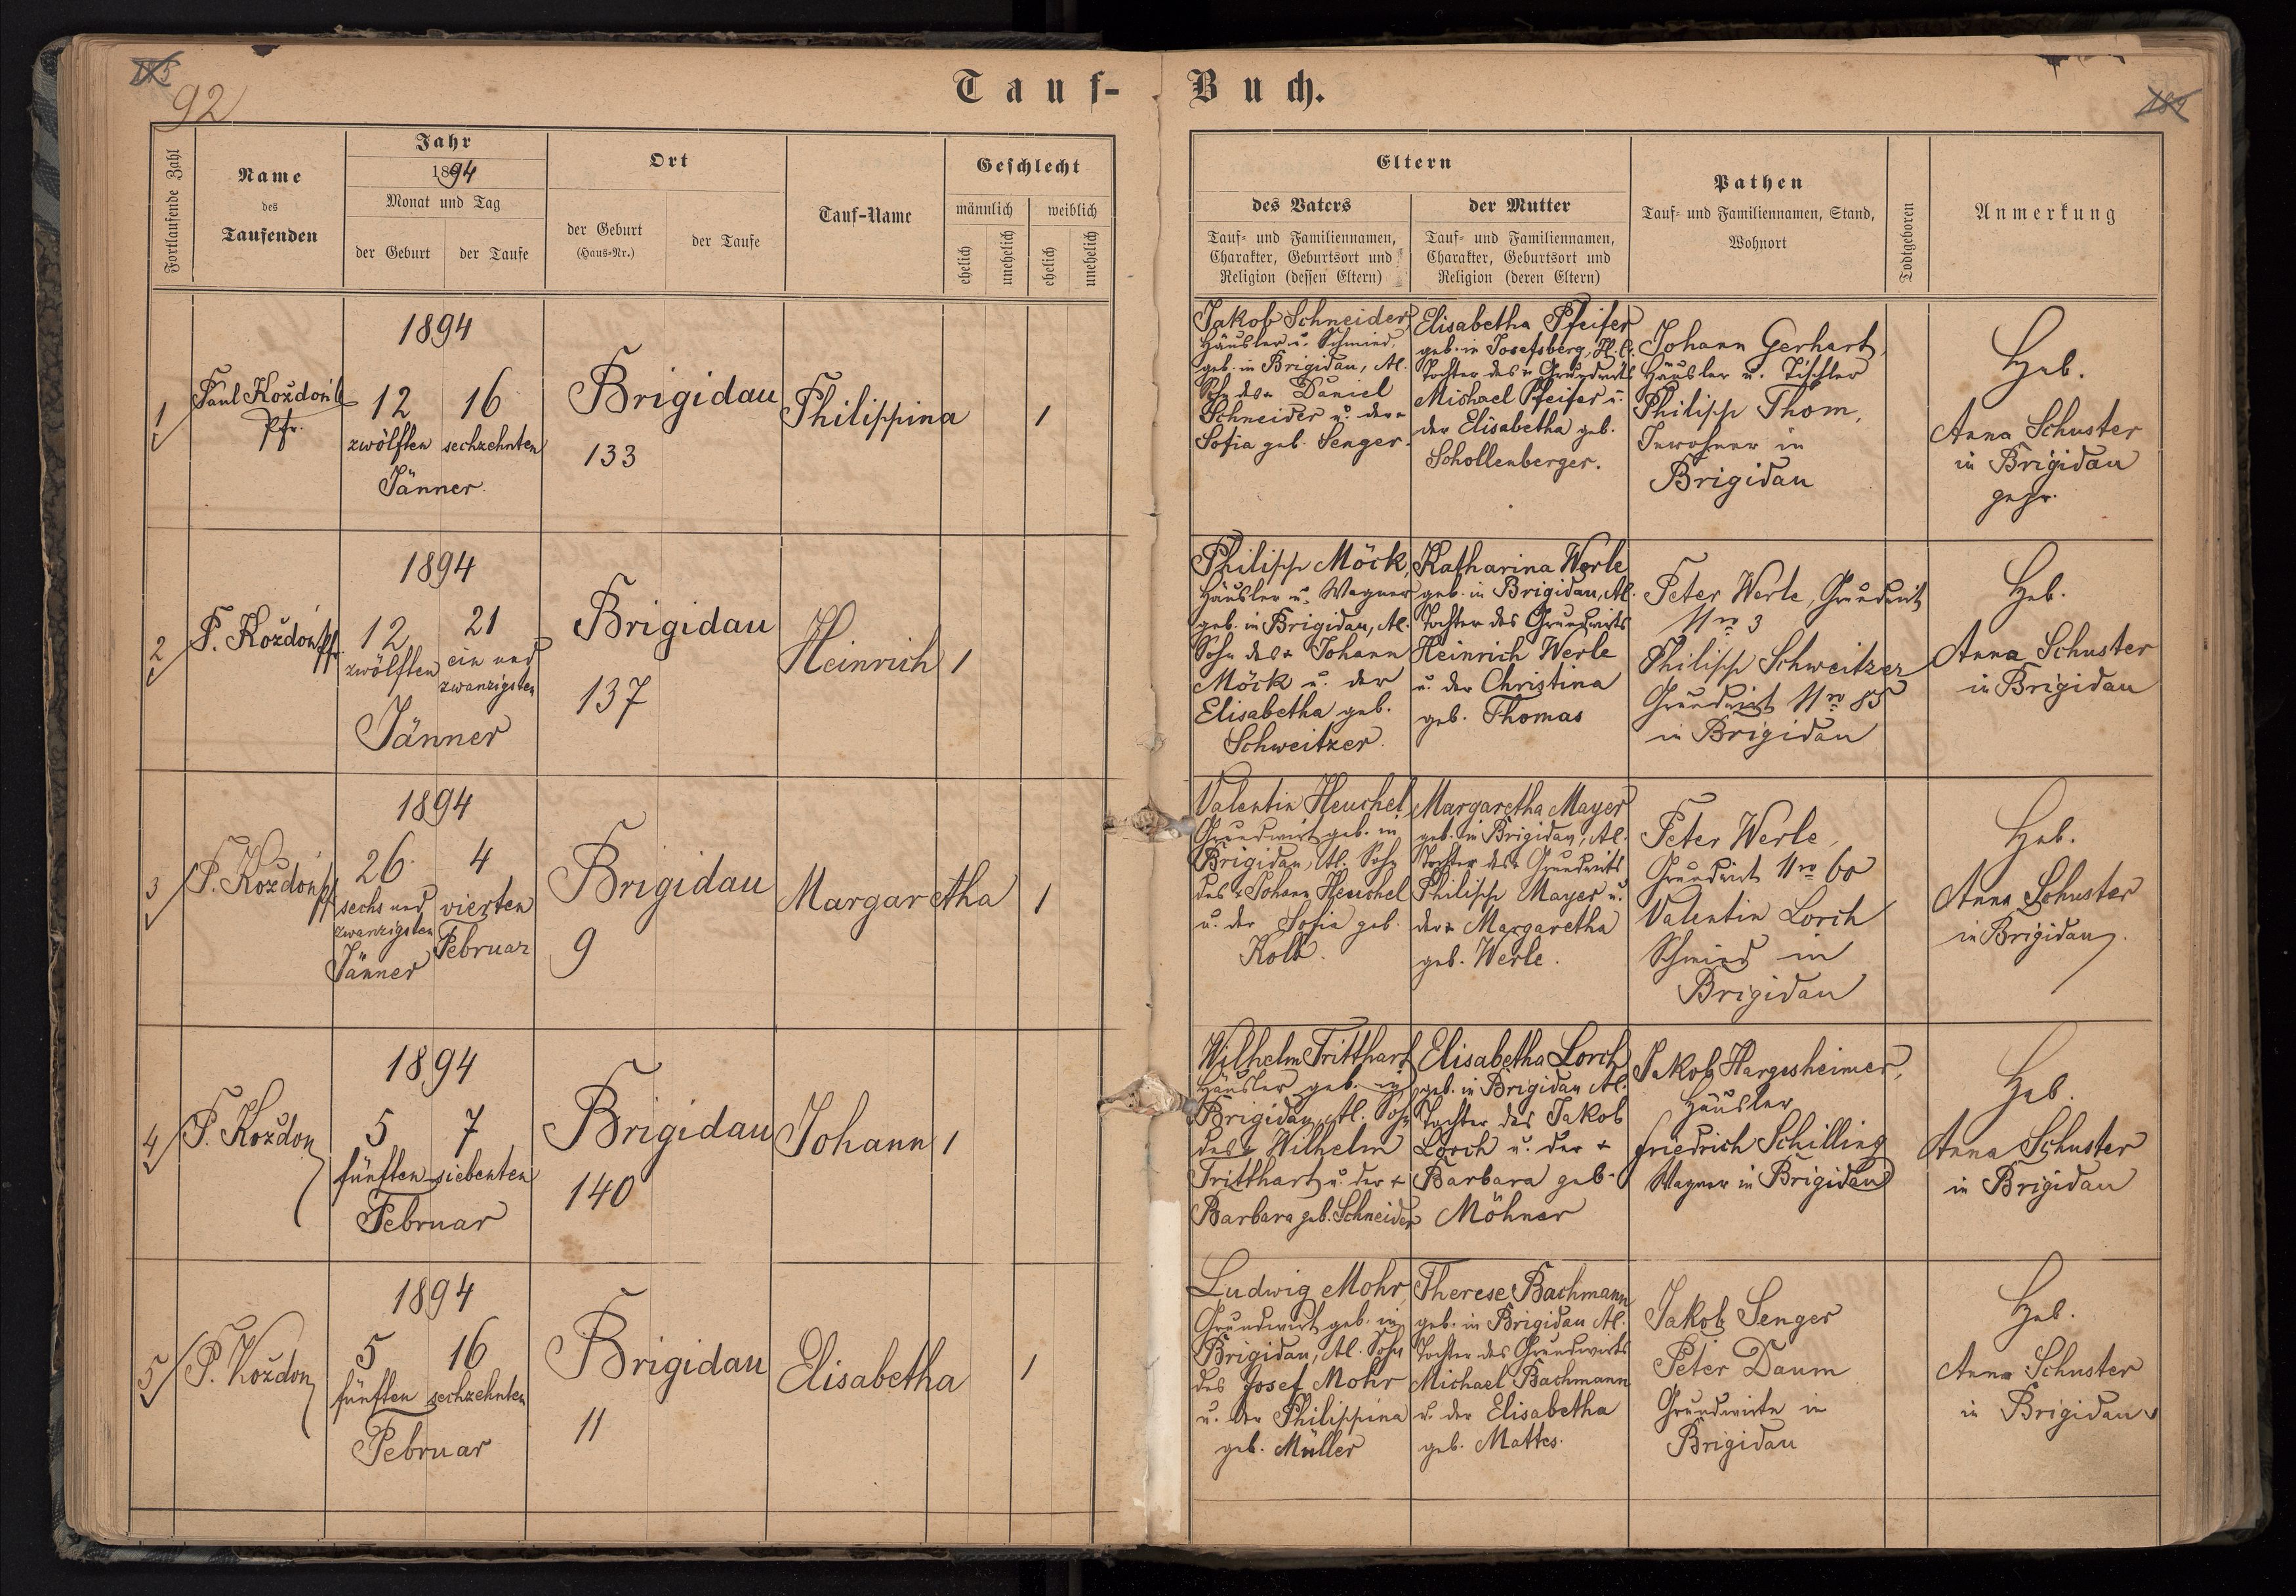 92
Tauf-Buch.
Fortlaufende Zahl
Name
des
Taufenden
Jahr
1894
Monat und Tag
der Geburt
der Taufe
Ort
der Geburt
(Haus-Nr.)
der Taufe
Tauf-Name
Geschlecht
männlich
weiblich
ehelich
unehelich
ehelich
unehelich
Eltern
des Vaters
Tauf- und Familiennamen,
Charakter, Geburtsort und
Religion (dessen Eltern)
der Mutter
Tauf- und Familiennamen,
Charakter, Geburtsort und
Religion (deren Eltern)
Pathen
Tauf- und Familiennamen, Stand,
Wohnort
Todtgeboren
Anmerkung
1
Paul Koždoń
Pfr.
1894
12
zwölften
16
sechzehnten
Jänner
Brigidau
133
Philippina
1
Jakob Schneider,
Häusler u. Schmied,
geb. in Brigidau, Al.
Sohn des + Daniel
Schneider u. der +
Sofia geb. Senger.
Elisabetha Pfeifer
geb. in Josefsberg,
Tochter des + Grundwirts
Michael Pfeifer u.
der Elisabetha geb.
Schollenberger.
Johann Gerhart,
Häusler u. Tischler
Philipp Thom,
Inwohner in
Brigidau
Heb.
Anna Schuster
in Brigidau
gepr.
2
P. Koždoń Pf.
1894
12
zwölften
21
ein und
zwanzigsten
Jänner
Brigidau
137
Heinrich
1
Philipp Möck,
Häusler u. Wagner
geb. in Brigidau, Al.
Sohn des + Johann
Möck u. der
Elisabetha geb.
Schweitzer.
Katharina Werle
geb. in Brigidau, Al.
Tochter des Grundwirts
Heinrich Werle
u. der Christina
geb. Thomas
Peter Werle, Grundwirt
Nro 3
Philipp Schweitzer
Grundwirt Nro 85
in Brigidau
Heb.
Anna Schuster
in Brigidau
3
P. Koždoń Pf
1894
26
sechs und
zwanzigsten
Jänner
4
vierten
Februar
Brigidau
9
Margaretha
1
Valentin Heuchel,
Grundwirt geb. in
Brigidau, Al. Sohn
des + Johann Heuchel
u. der Sofia geb.
Kolb.
Margaretha Mayer
geb. in Brigidau, Al.
Tochter des + Grundwirts
Philipp Mayer u.
der + Margaretha
geb. Werle.
Peter Werle,
Grundwirt Nro 60
Valentin Lorch
Schmied in
Brigidau
Heb.
Anna Schuster
in Brigidau.
4
P. Koždon
1894
5
fünften
7
siebenten
Februar
Brigidau
140
Johann
1
Wilhelm Tritthart
Häusler geb. in
Brigidau, Al. Sohn
des + Wilhelm
Tritthart u. der +
Barbara geb. Schneider
Elisabetha Lorch
geb. in Brigidau Al.
Tochter des Jakob
Lorch u. der +
Barbara geb.
Möhner
Jakob Hargesheimer,
Häusler
Friedrich Schilling
Wagner in Brigidau
Heb.
Anna Schuster
in Brigidau
5
P. Koždon
1894
5
fünften
16
sechzehnten
Februar
Brigidau
11
Elisabetha
1
Ludwig Mohr,
Grundwirt geb. in
Brigidau, Al. Sohn
des Josef Mohr
u. der Philippina
geb. Müller
Therese Bachmann
geb. in Brigidau Al.
Tochter des Grundwirts
Michael Bachmann
u. der Elisabetha
geb. Mattes.
Jakob Senger
Peter Daum
Grundwirte in
Brigidau
Heb.
Anna Schuster
in Brigidau